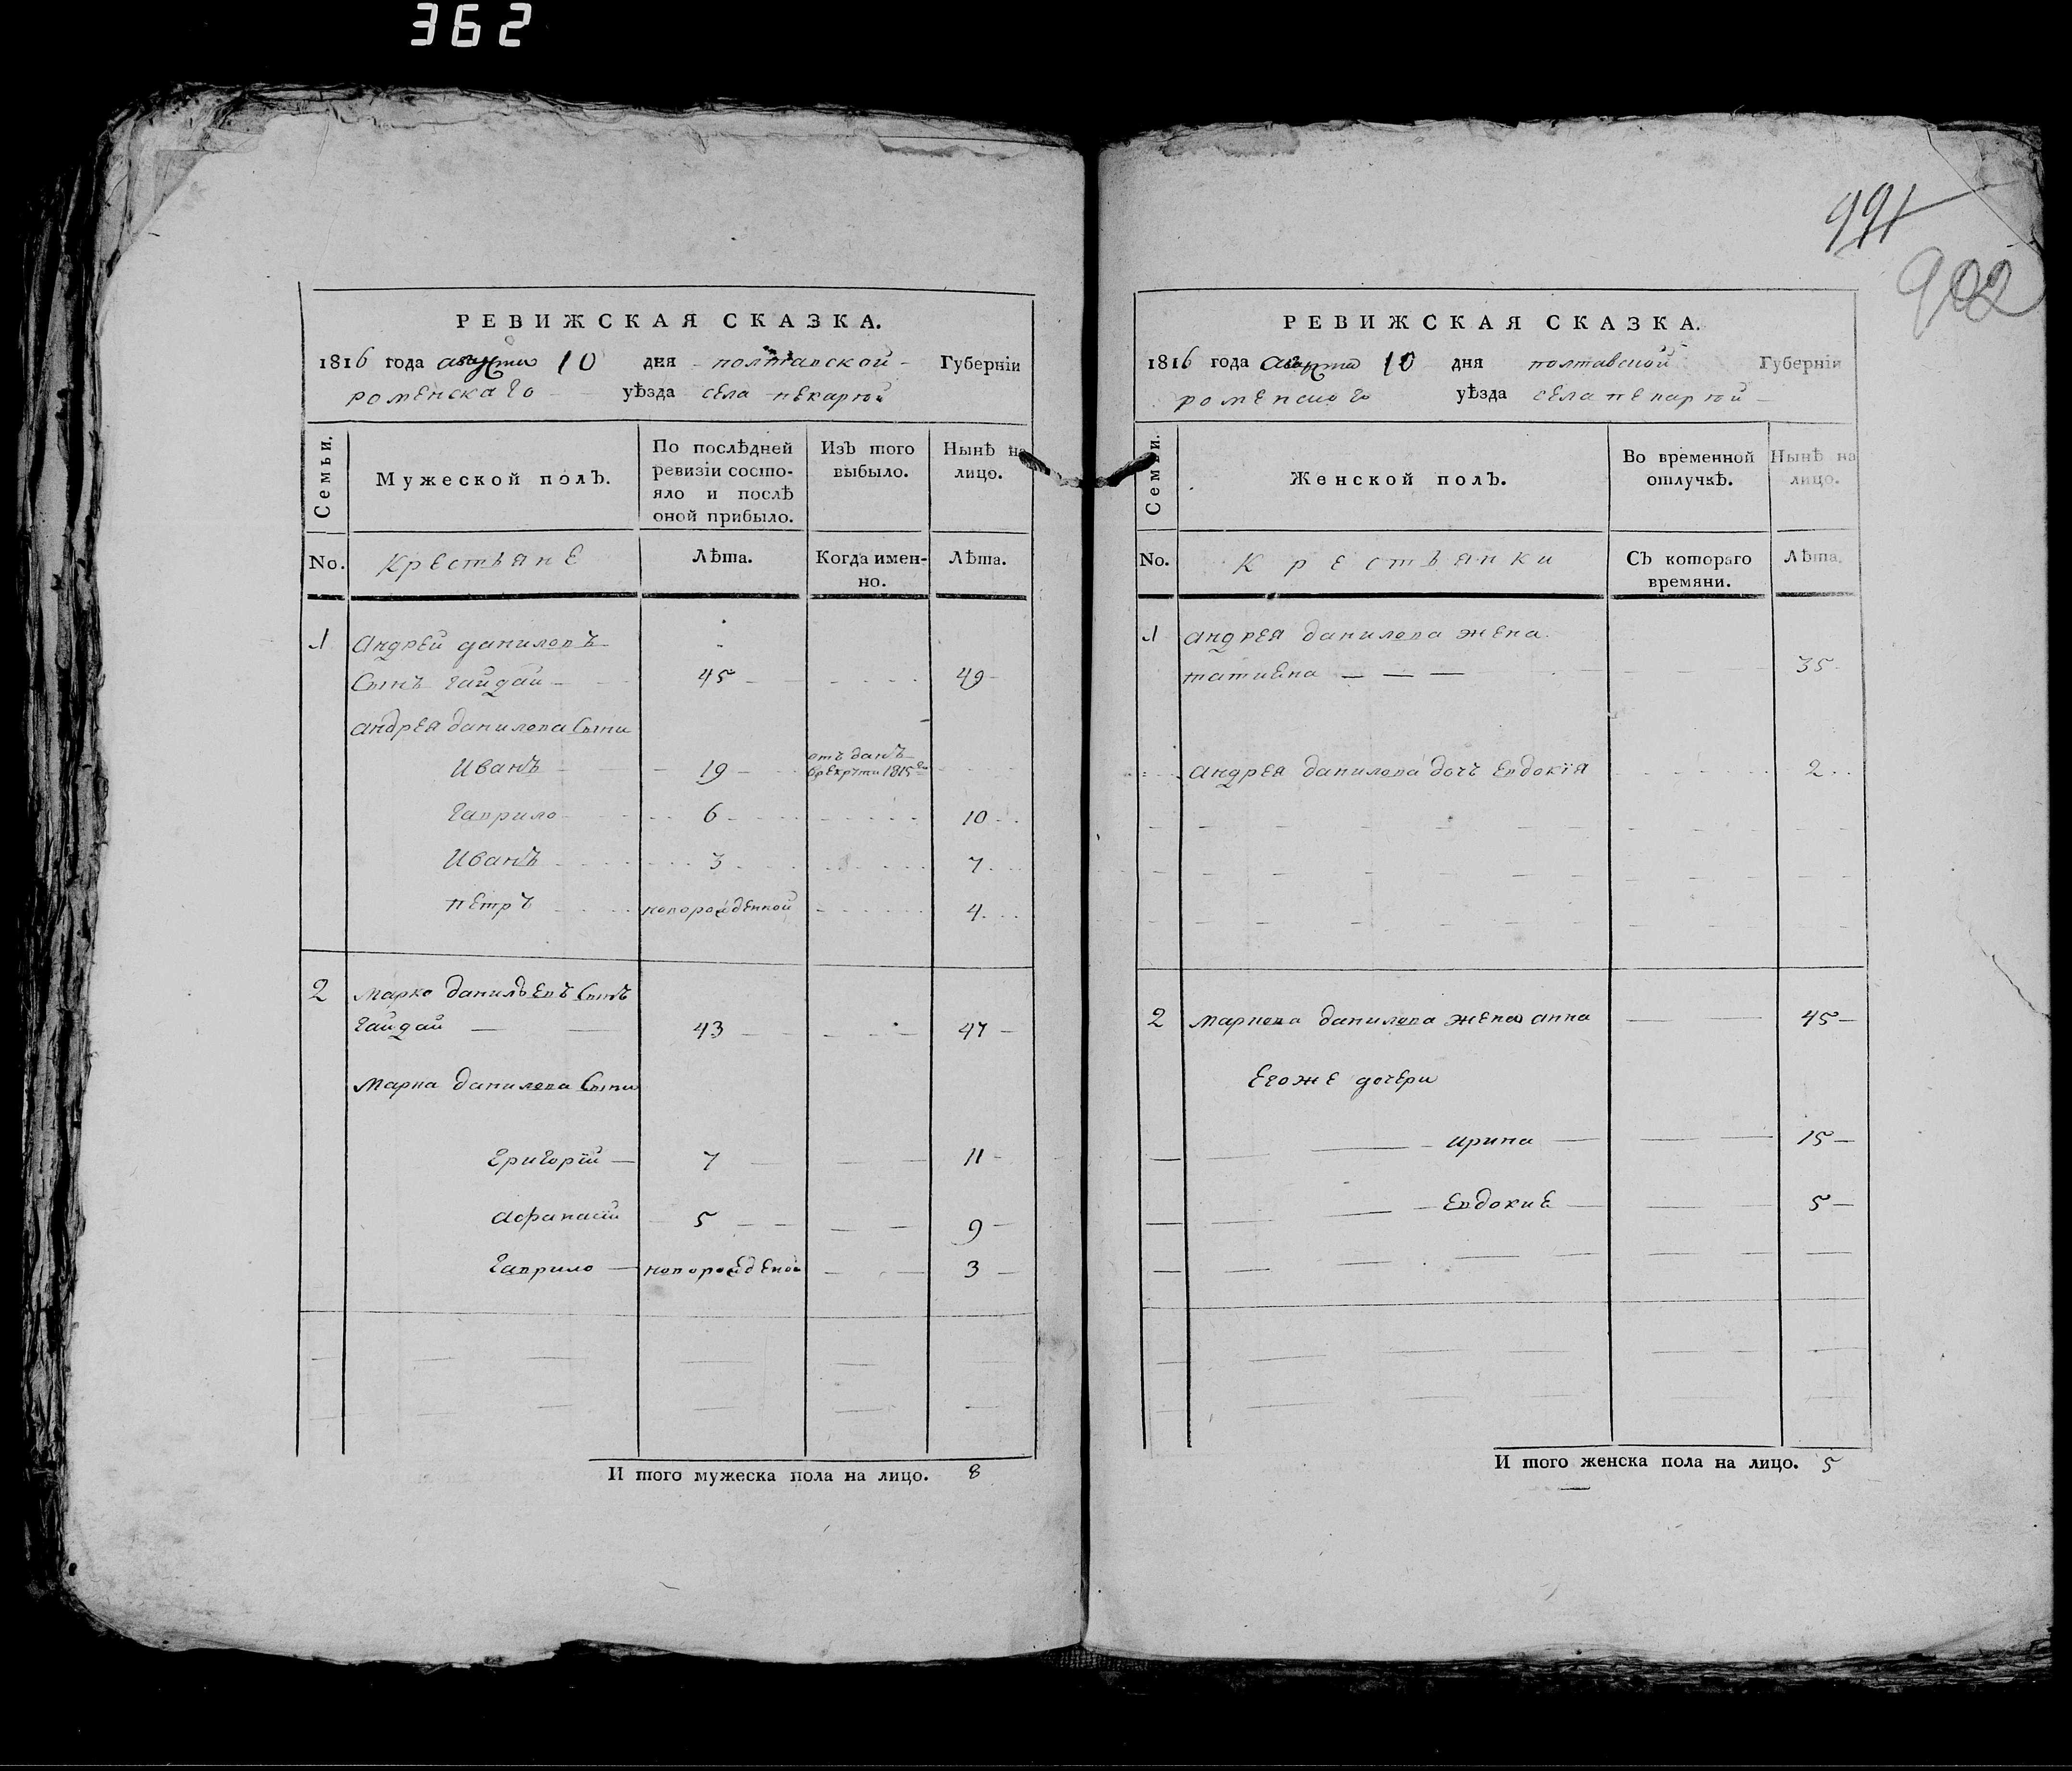 362
991
902
РЕВИЖСКАЯ СКАЗКА.
1816 года августа 10 дня полтавской Губерніи
роменскаго уѣзда села пекарной
Семьи.
Мужеской полъ.
По послѣдней ревизіи состо-
яло и послѣ
оной прибыло.
Изъ того
выбыло.
Нынѣ на
лицо.
No. Крестьяне Лѣта. Когда имен-
но. Лѣта.
1 Андрей даниловъ
Сынъ гайдай 45 49
андрея данилова сыни
Иванъ 19 отъданъ
врекруты 1815го
гаврило 6 10
Иванъ 3 7
петръ новорожденной 4
2 Марко данильевъ сынъ
гайдай 43 47
Марка данилова сыни
григорій 7 11
Афанасій 5 9
гаврило новорожденой 3
И того мужеска пола на лицо. 8
РЕВИЖСКАЯ СКАЗКА.
1816 года августа 10 дня полтавской Губерніи
роменского уѣзда села пекарной
Семьи.
Женской полъ.
Во временной
отлучкѣ.
Нынѣ на
лицо.
No. Крестьянки Съ котораго
времяни. Лѣта.
1 андрея данилова жена
татиена 35
андрея данилова дочъ евдокія 2
2 маркова данилова жена анна 45
Егоже дочери
ирина 15
Евдокие 5
И того женска пола на лицо. 5